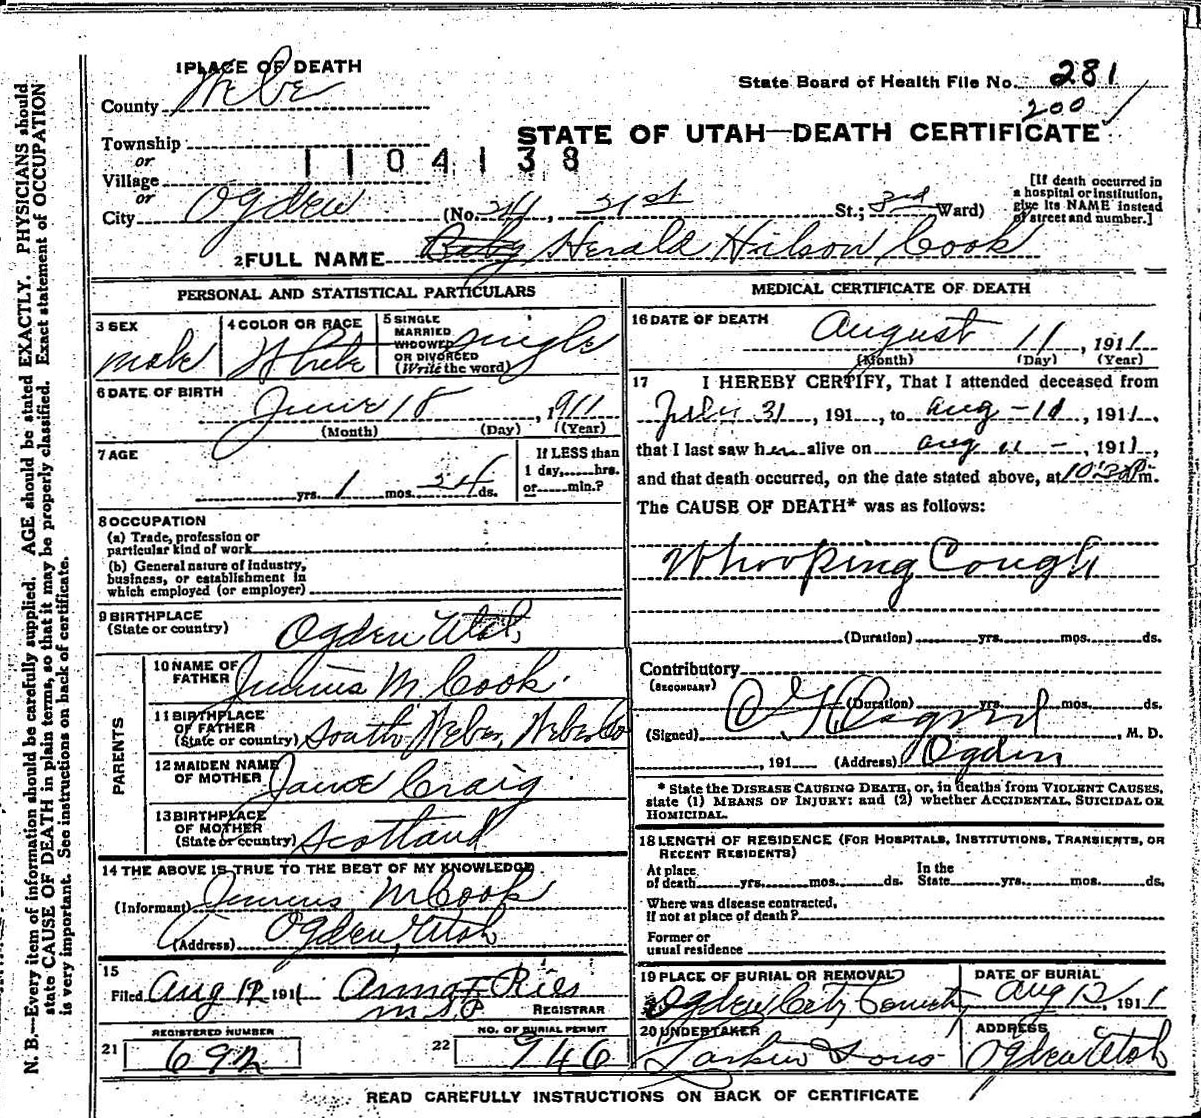 1 PLACE OF DEATH
County Webe
State Board of Health File No. 281
200
Township
or
1104138
STATE OF UTAH—DEATH CERTIFICATE
Village
or
City Ogden (No. 31st St.; 3rd Ward)
[If death occurred in a hospital or institution, give its NAME instead of street and number.]
2 FULL NAME Baby Herald Hilson Cook
PERSONAL AND STATISTICAL PARTICULARS
3 SEX
male
4 COLOR OR RACE
White
5 SINGLE MARRIED WIDOWED OR DIVORCED (Write the word)
single
6 DATE OF BIRTH
June 18, 1911
(Month) (Day) (Year)
7 AGE
yrs. 1 mos. 24 ds.
If LESS than 1 day,......hrs. or......min.?
8 OCCUPATION
(a) Trade, profession or particular kind of work
(b) General nature of industry, business, or establishment in which employed (or employer)
9 BIRTHPLACE
(State or country) Ogden Utah
PARENTS
10 NAME OF FATHER Junius M Cook
11 BIRTHPLACE OF FATHER (State or country) South Weber, Weber Co
12 MAIDEN NAME OF MOTHER Jane Craig
13 BIRTHPLACE OF MOTHER (State or country) Scotland
14 THE ABOVE IS TRUE TO THE BEST OF MY KNOWLEDGE
(Informant) Junius M Cook
(Address) Ogden, Utah
15
Filed Aug 12 1911 Anna F Ries
M.S.P. REGISTRAR
REGISTERED NUMBER
21 692
NO. OF BURIAL PERMIT
22 946
MEDICAL CERTIFICATE OF DEATH
16 DATE OF DEATH
August 11, 1911
(Month) (Day) (Year)
17 I HEREBY CERTIFY, That I attended deceased from
July 31, 191..., to Aug - 11, 1911.,
that I last saw h alive on Aug 11 -, 1911.,
and that death occurred, on the date stated above, at m.
The CAUSE OF DEATH* was as follows:
Whooping Cough
(Duration) yrs. mos. ds.
Contributory
(SECONDARY)
(Duration) yrs. mos. ds.
(Signed) , M. D.
, 191 (Address) Ogden
* State the DISEASE CAUSING DEATH, or, in deaths from VIOLENT CAUSES, state (1) MEANS OF INJURY: and (2) whether ACCIDENTAL, SUICIDAL OR HOMICIDAL.
18 LENGTH OF RESIDENCE (FOR HOSPITALS, INSTITUTIONS, TRANSIENTS, OR RECENT RESIDENTS)
At place of death......yrs......mos......ds. In the State......yrs......mos......ds.
Where was disease contracted, if not at place of death?
Former or usual residence
19 PLACE OF BURIAL OR REMOVAL
Ogden City
DATE OF BURIAL
Aug 12, 1911
20 UNDERTAKER
Larkin Sons
ADDRESS
Ogden Utah
READ CAREFULLY INSTRUCTIONS ON BACK OF CERTIFICATE
N. B.—Every item of information should be carefully supplied. AGE should be stated EXACTLY. PHYSICIANS should
state CAUSE OF DEATH in plain terms, so that it may be properly classified. Exact statement of OCCUPATION
is very important. See instructions on back of certificate.